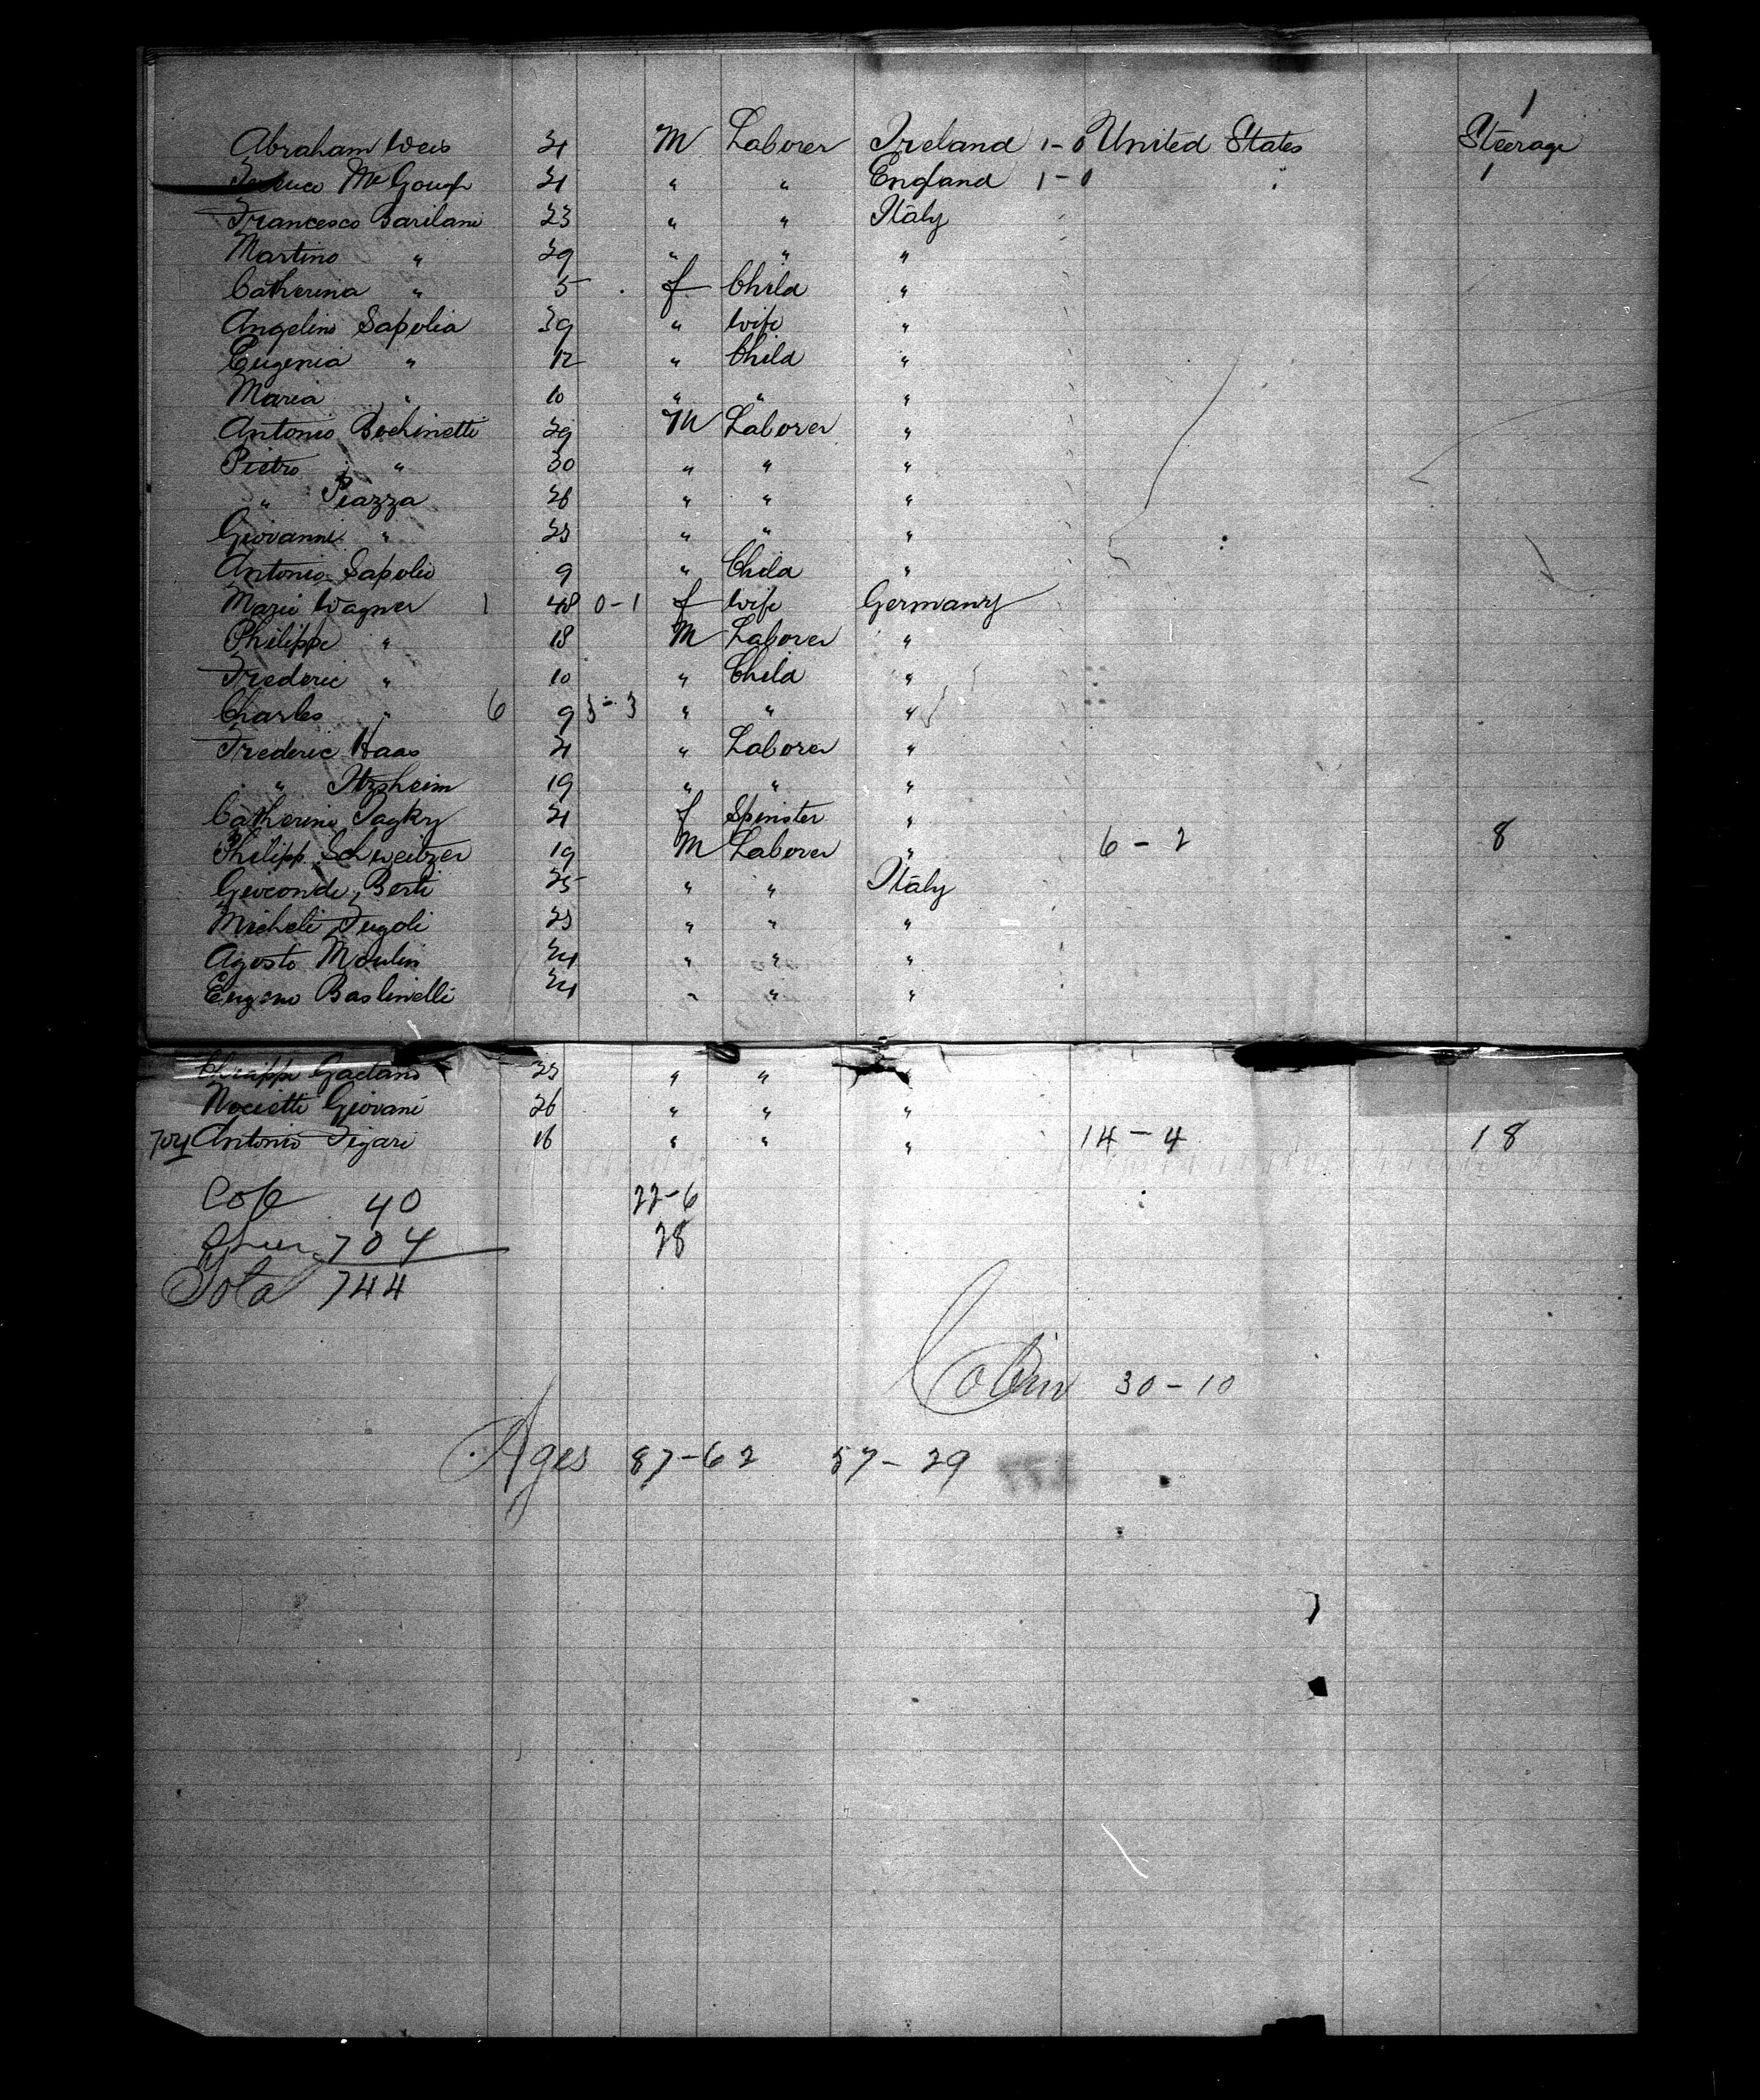 1
Abraham Weis 21 M Laborer Ireland 1-0 United States Steerage
McGough 21 " " England 1-0 1
Francesco Barilani 23 " " Italy
Martino " 29 " " "
Catherina " 5 f Child "
Angelina Sapolia 39 " Wife "
Eugenia " 12 " Child "
Maria " 10 " " "
Antonio Bochinetti 29 M Laborer "
Pietro " 30 " " "
" Piazza 26 " " "
Giovanni " 23 " " "
Antonio Sapolio 9 " Child "
Marie Wagner 1 48 0-1 f Wife Germany
Philippe " 18 M Laborer "
Frederic " 10 " Child "
Charles " 6 9 3-3 " " "
Frederic Haas 21 " Laborer "
" Itzsheim 19 " " "
Catherine 21 f Spinster "
Philipp Schweitzer 19 M Laborer " 6-2 8
Geocondi Berti 25 " " Italy
Micheli Fugoli 23 " " "
Agosto Moulin 24 " " "
Eugeno Baslinelli 24 " " "
Chiappi Gaetano 23 " " "
Nocietti Giovani 26 " " "
704 Antonio Figari 16 " " " 14-4 18
40 22-6
704 28
Total 744
Cabin 30-10
Ages 87-62 57-29